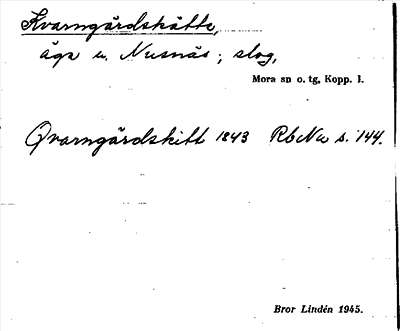 Kvarngårdskätte,
ägr u. Nusnäs; slog,
Mora sn o. tg, Kopp. l.
Qvarngårdskitt 1843 RbNu s. 144.
Bror Lindén 1945.